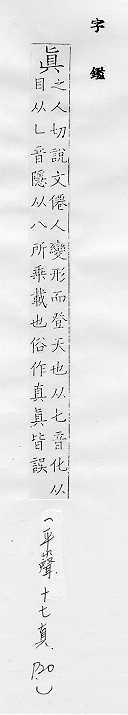 字鑑
眞
之人切說文僊人變形而登天也从𠤎音化从
目从乚音隱从八所乗載也俗作真眞皆誤
(平聲.十七真.P.20)